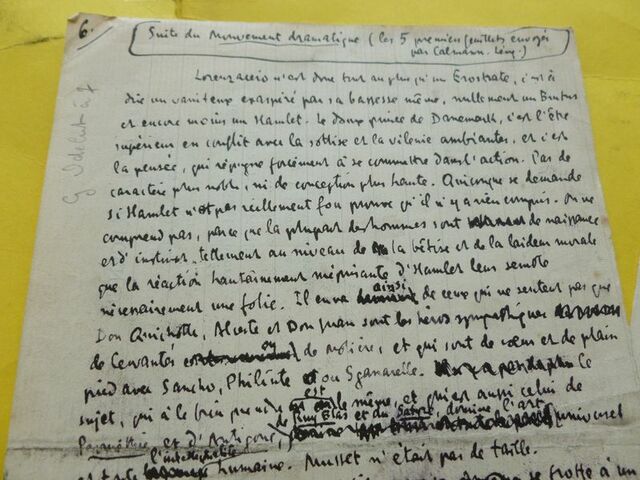 6.
Suite du Mouvement dramatique (les 5 premiers feuillets envoyés
par Calmann-Lévy.)
Lorenzaccio n'est donc tout au plus qu'un Erostrate, c'est à
dire un vaniteux exaspéré par sa bassesse même, nullement un Brutus
et encore moins un Hamlet. Le doux prince de Danemark, c'est l'Être
supérieur en conflit avec la sottise et la vilenie ambiantes, et c'est
la pensée, qui répugne forcément à se commettre dans l'action. Pas de
caractère plus noble, ni de conception plus haute. Quiconque se demande
si Hamlet n'est pas réellement fou prouve qu'il n'y a rien compris. On ne
comprend pas, parce que la plupart des hommes sont de naissance
et d'instinct tellement au niveau de la bêtise et de la laideur morale
que la réaction hautainement méprisante d'Hamlet leur semble
nécessairement une folie. Il en va ainsi de ceux qui ne sentent pas que
Don Quichotte, Alceste et Don Juan sont les héros sympathiques
de Cervantes ou de Molière, et qui sont de cœur et de plain
pied avec Sancho, Philinte ou Sganarelle. Le
sujet, qui à le bien prendre est le même, et qui est aussi celui de
Prométhée et d'Antigone, de Ruy Blas et du Satyre, domine l'art universel
et toute l'intellectualité humaine. Musset n'était pas de taille.
se frotte à un